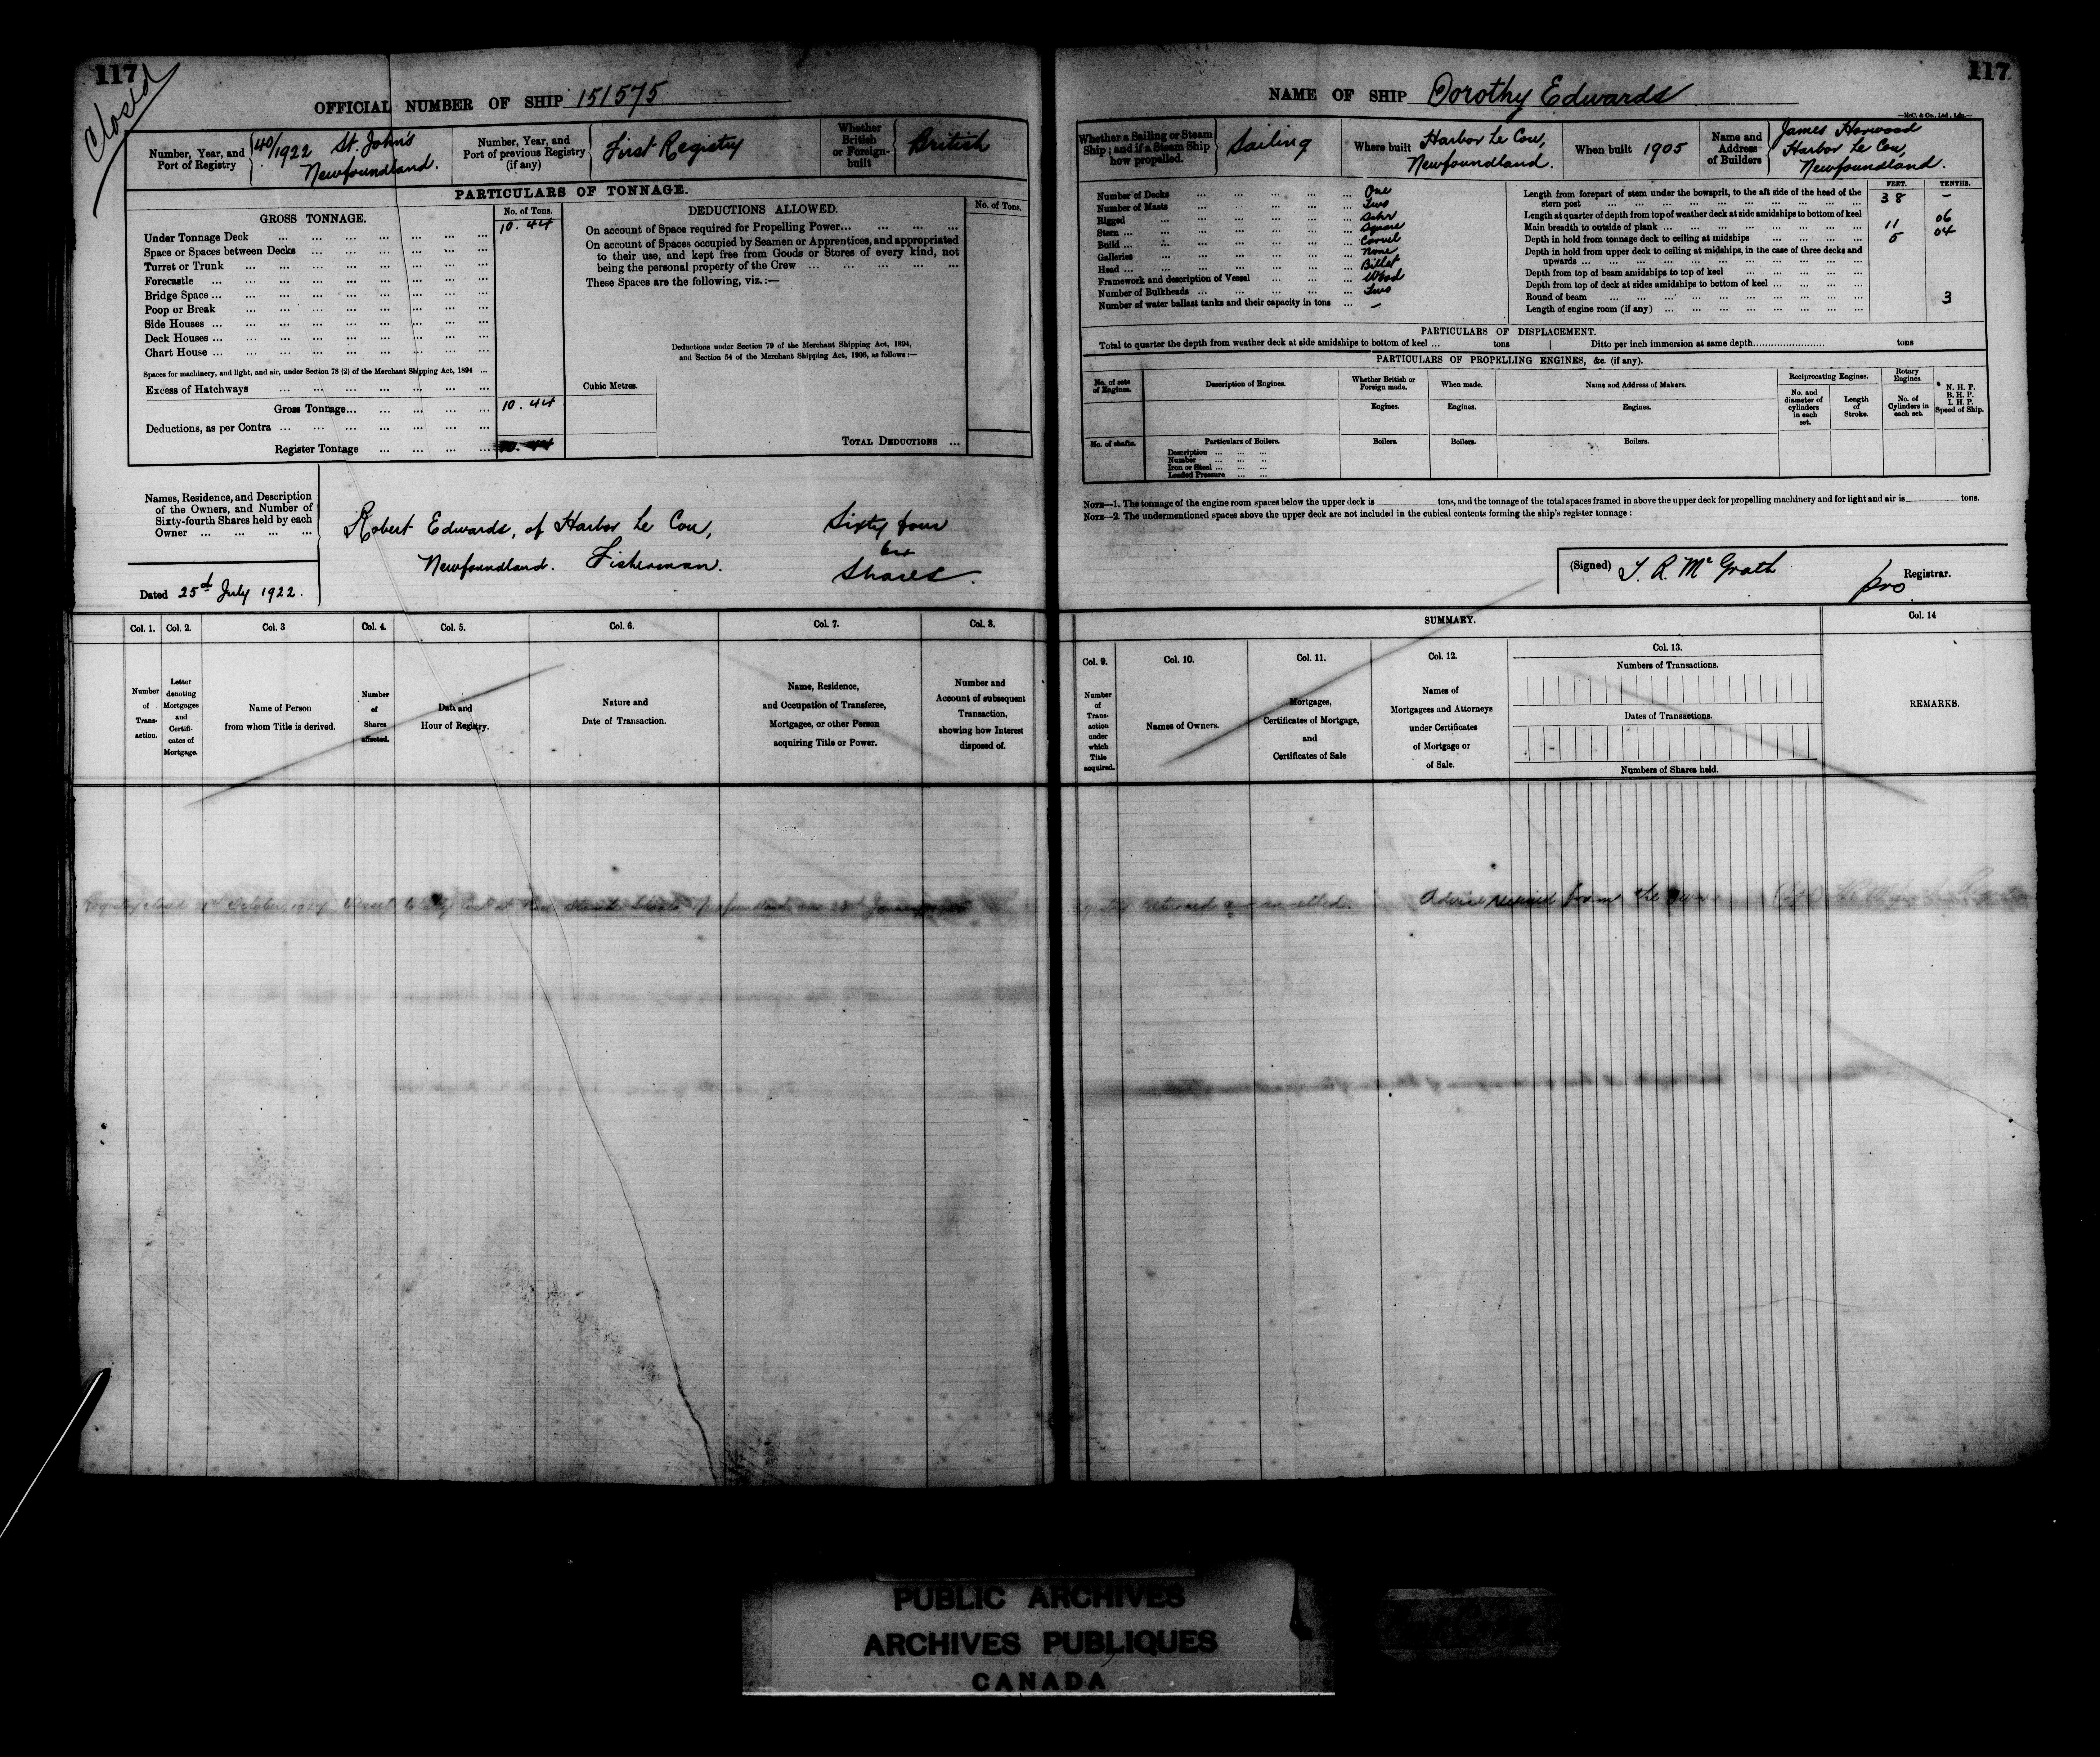 117
Closed
OFFICIAL NUMBER OF SHIP 151575
Number, Year, and Port of Registry
40/1922 St. John's
Newfoundland.
Number, Year, and Port of previous Registry (if any)
First Registry
Whether British or Foreign-built
British
PARTICULARS OF TONNAGE.
GROSS TONNAGE.
No. of Tons.
Under Tonnage Deck ... 10.44
Space or Spaces between Decks ...
Turret or Trunk ...
Forecastle ...
Bridge Space ...
Poop or Break ...
Side Houses ...
Deck Houses ...
Chart House ...
Spaces for machinery, and light, and air, under Section 78 (2) of the Merchant Shipping Act, 1894 ...
Excess of Hatchways ...
Gross Tonnage... 10.44
Deductions, as per Contra ...
Register Tonnage ...
DEDUCTIONS ALLOWED.
No. of Tons.
On account of Space required for Propelling Power...
On account of Spaces occupied by Seamen or Apprentices, and appropriated
to their use, and kept free from Goods or Stores of every kind, not
being the personal property of the Crew ...
These Spaces are the following, viz.:—
Deductions under Section 79 of the Merchant Shipping Act, 1894,
and Section 54 of the Merchant Shipping Act, 1906, as follows:—
Cubic Metres.
TOTAL DEDUCTIONS ...
Names, Residence, and Description
of the Owners, and Number of
Sixty-fourth Shares held by each
Owner ...
Robert Edwards, of Harbor Le Cou, Sixty four
Newfoundland. Fisherman. Shares.
Dated 25th July 1922.
Col. 1. Col. 2. Col. 3 Col. 4. Col. 5. Col. 6. Col. 7. Col. 8.
Number of Transaction.
Letter denoting Mortgages and Certificates of Mortgage.
Name of Person from whom Title is derived.
Number of Shares affected.
Date and Hour of Registry.
Nature and Date of Transaction.
Name, Residence, and Occupation of Transferee, Mortgagee, or other Person acquiring Title or Power.
Number and Account of subsequent Transaction, showing how Interest disposed of.
117
NAME OF SHIP Dorothy Edwards
Whether a Sailing or Steam Ship; and if a Steam Ship how propelled.
Sailing
Where built Harbor Le Cou, Newfoundland.
When built 1905
Name and Address of Builders
James Horwood
Harbor Le Cou,
Newfoundland.
Number of Decks ... One
Number of Masts ... Two
Rigged ... Schr
Stem ... Square
Build ... Carvel
Galleries ... None
Head ... Billet
Framework and description of Vessel ... Wood
Number of Bulkheads ... Two
Number of water ballast tanks and their capacity in tons ... —
FEET. TENTHS.
Length from forepart of stem under the bowsprit, to the aft side of the head of the stern post ... 38 –
Length at quarter of depth from top of weather deck at side amidships to bottom of keel
Main breadth to outside of plank ... 11 06
Depth in hold from tonnage deck to ceiling at midships ... 5 04
Depth in hold from upper deck to ceiling at midships, in the case of three decks and upwards ...
Depth from top of beam amidships to top of keel ...
Depth from top of deck at sides amidships to bottom of keel ...
Round of beam ... 3
Length of engine room (if any) ...
PARTICULARS OF DISPLACEMENT.
Total to quarter the depth from weather deck at side amidships to bottom of keel ... tons Ditto per inch immersion at same depth... tons
PARTICULARS OF PROPELLING ENGINES, &c. (if any).
No. of sets of Engines.
Description of Engines.
Whether British or Foreign made.
When made.
Name and Address of Makers.
Reciprocating Engines.
Rotary Engines.
N. H. P.
B. H. P.
I. H. P.
Speed of Ship.
No. and diameter of cylinders in each set.
Length of Stroke.
No. of Cylinders in each set.
Engines. Engines. Engines.
No. of shafts.
Particulars of Boilers.
Boilers. Boilers. Boilers.
Description ...
Number ...
Iron or Steel ...
Loaded Pressure ...
NOTE—1. The tonnage of the engine room spaces below the upper deck is tons, and the tonnage of the total spaces framed in above the upper deck for propelling machinery and for light and air is tons.
NOTE—2. The undermentioned spaces above the upper deck are not included in the cubical contents forming the ship's register tonnage:
(Signed) T. R. McGrath
pro Registrar.
SUMMARY.
Col. 14
Col. 9. Col. 10. Col. 11. Col. 12. Col. 13.
Number of Transaction under which Title acquired.
Names of Owners.
Mortgages, Certificates of Mortgage, and Certificates of Sale
Names of Mortgagees and Attorneys under Certificates of Mortgage or of Sale.
Numbers of Transactions.
Dates of Transactions.
Numbers of Shares held.
REMARKS.
Advice received from the
PUBLIC ARCHIVES
ARCHIVES PUBLIQUES
CANADA